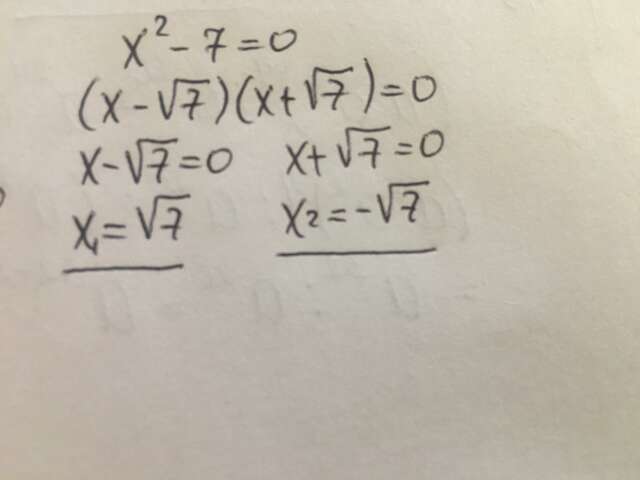 x² - 7 = 0
(x - √7)(x + √7) = 0
x - √7 = 0 x + √7 = 0
x₁ = √7 x₂ = -√7